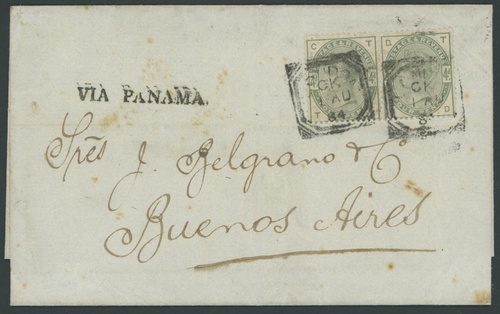 VIA PANAMA.
Sres J. Belgrano & Co
Buenos Aires
C T
D T
T
D
84